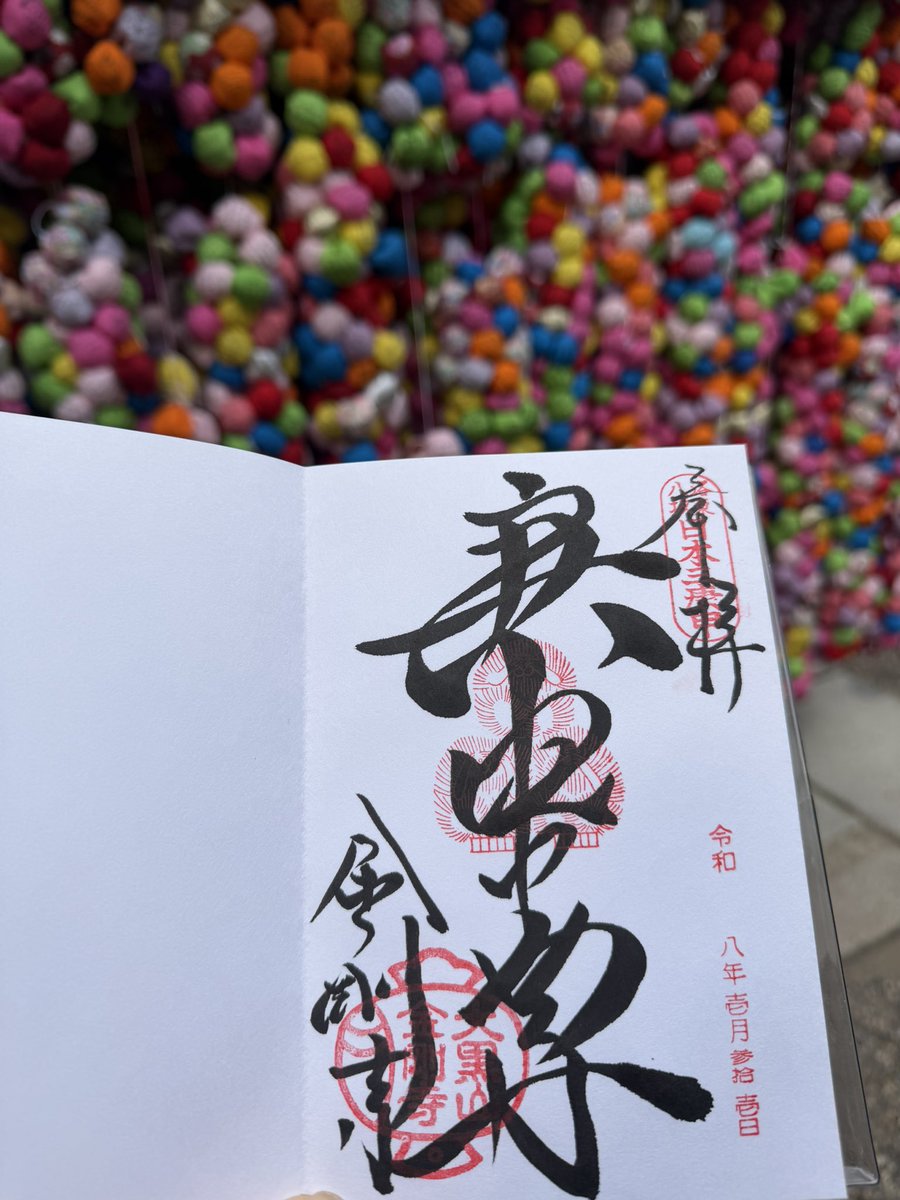 拝
日本三庚申
令和 八年壱月参拾壱日
庚申尊
金剛寺
大黒山
金剛寺